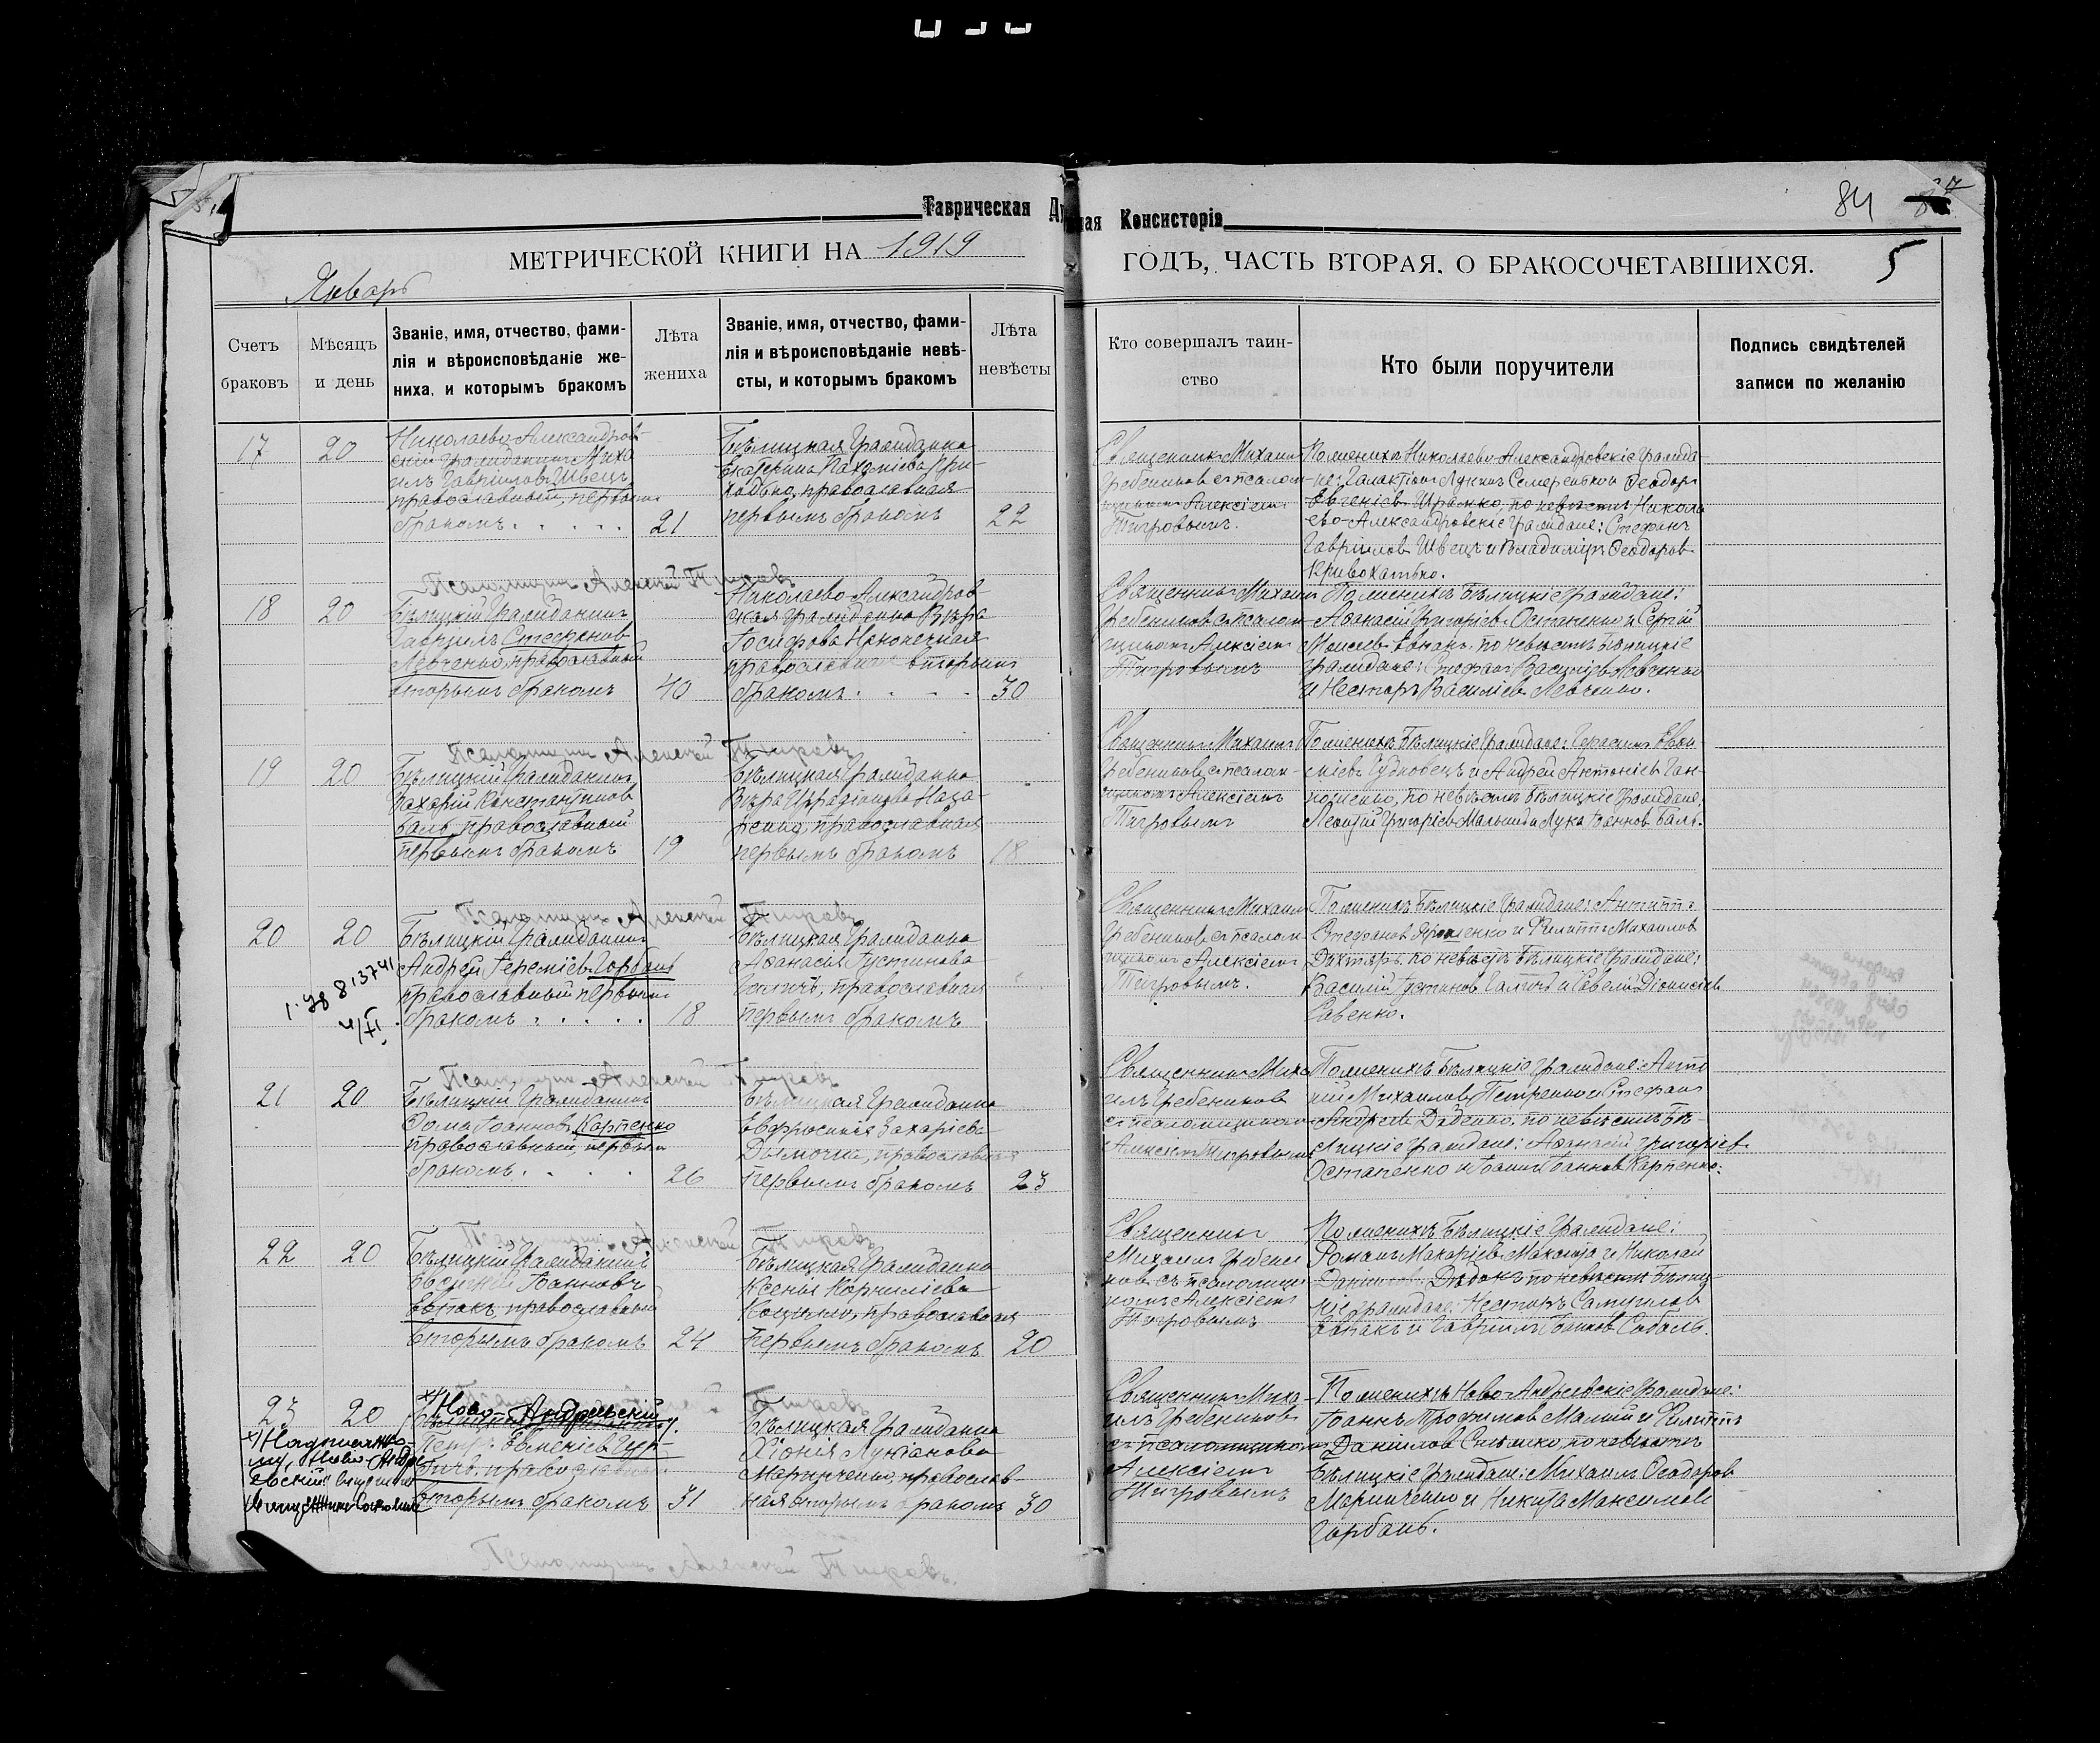 Таврическая Ду
ная Консисторія
84
МЕТРИЧЕСКОЙ КНИГИ НА 1919
ГОДЪ, ЧАСТЬ ВТОРАЯ, О БРАКОСОЧЕТАВШИХСЯ.
5
Январь
Счетъ
браковъ
Мѣсяцъ
и день
Званіе, имя, отчество, фами-
лія и вѣроисповѣданіе же-
ниха, и которымъ бракомъ
Лѣта
жениха
Званіе, имя, отчество, фами-
лія и вѣроисповѣданіе невѣ-
сты, и которымъ бракомъ
Лѣта
невѣсты
Кто совершалъ таин-
ство
Кто были поручители
Подпись свидѣтелей
записи по желанію
17
20
Николаево-Александров-
скій гражданинъ Миха
илъ Гавриловъ Швецъ
православный, первымъ
бракомъ
21
Бѣлицкая гражданка
Екатерина Пахоміева При-
ходько, православная
первымъ бракомъ
22
Священникъ Михаилъ
Гребениковъ с псалом-
щикомъ Алексіемъ
Тигровымъ.
По женихѣ Николаево-Александровскіе гражда-
не: Галактіонъ Лукинъ Семеренко и Ѳеодоръ
по невѣстѣ Никола
ево-Александровскіе граждане: Стефанъ
Гавріиловъ Швецъ и Владиміръ Ѳеодоровъ
Кривохатько.
Псаломщикъ Алексѣй Тигровъ
18
20
Бѣлицкій гражданинъ
Гавріилъ Стефановъ
Левченко, православный
вторымъ бракомъ
40
Николаево-Александров-
ская гражданка Вѣра
Іосифова Наконечная
православная вторымъ
бракомъ
30
Священникъ Михаилъ
Гребениковъ с псалом-
щикомъ Алексіемъ
Тигровымъ
По женихѣ Бѣлицкіе граждане:
Аѳанасій Григоріевъ Остапенко и Сергій
Моисеевъ по невѣстѣ Бѣлицкіе
граждане: Стефанъ Василіевъ Левченко
и Несторъ Василіевъ Левченко.
Псаломщикъ Алексѣй Тигровъ
19
20
Бѣлицкій гражданинъ
Захарій Константиновъ
Баль, православный
первымъ бракомъ
19
Бѣлицкая гражданка
Вѣра Наза-
ренко, православная
первымъ бракомъ
18
Священникъ Михаилъ
Гребениковъ с псалом-
щикомъ Алексіемъ
Тигровымъ
По женихѣ Бѣлицкіе граждане: Герасимъ
и Андрей Антоніевъ Ган-
по невѣстѣ Бѣлицкіе граждане:
Леонтій Григоріевъ и Лука Іоанновъ Баль.
Псаломщикъ Алексѣй Тигровъ
20
20
Бѣлицкій гражданинъ
Андрей Іереміевъ Горбань
православный первымъ
бракомъ
18
Бѣлицкая гражданка
Аѳанасія Іустинова
православная
первымъ бракомъ
Священникъ Михаилъ
Гребениковъ с псалом
щикомъ Алексіемъ
Тигровымъ.
По женихѣ Бѣлицкіе граждане: Антипъ
Стефановъ и Филиппъ Михаиловъ
по невѣстѣ Бѣлицкіе граждане:
Василій Іустиновъ и Савелій Діонисіевъ
Савенко.
Псаломщикъ Алексѣй Тигровъ
21
20
Бѣлицкій гражданинъ
Ѳома Іоанновъ Карпенко
православный, первымъ
бракомъ
26
Бѣлицкая гражданка
Евфросинія Захаріева
православная
первымъ бракомъ
23
Священникъ Миха
илъ Гребениковъ
с псаломщикомъ
Алексіемъ Тигровымъ
По женихѣ Бѣлицкіе граждане: Анто
ній Михаиловъ Петренко и Стефанъ
Андреевъ Дѣденко, по невѣстѣ Бѣ-
лицкіе граждане: Аѳанасій Григоріевъ
Остапенко и Іоаннъ Іоанновъ Карпенко.
Псаломщикъ Алексѣй Тигровъ
22
20
Бѣлицкій гражданинъ
Іоанновъ
Евпакъ, православный
вторымъ бракомъ
24
Бѣлицкая гражданка
Ксенія Корниліева
православная
первымъ бракомъ
20
Священникъ
Михаилъ Гребени
ковъ съ псаломщи
комъ Алексіемъ
Тигровымъ
По женихѣ Бѣлицкіе граждане:
Романъ Макаріевъ и Николай
по невѣстѣ Бѣлиц-
кіе граждане: Несторъ Самуиловъ
Евпакъ и Гавріилъ Іоанновъ Соболь.
23
20
Ново-Андреевскій
Петръ Евменіевъ Гур-
православный
вторымъ бракомъ
31
Бѣлицкая гражданка
Хіонія Лукіанова
Маринченко, православ
ная вторымъ бракомъ
30
Священникъ Миха-
илъ Гребениковъ
с псаломщикомъ
Алексіемъ
Тигровымъ
По женихѣ Ново-Андреевскіе граждане:
Іоаннъ Трофимовъ Малій и Филиппъ
Даніиловъ по невѣстѣ
Бѣлицкіе граждане: Михаилъ Ѳеодоровъ
Маринченко и Никита Максимовъ
Горбань.
Псаломщикъ Алексѣй Тигровъ.